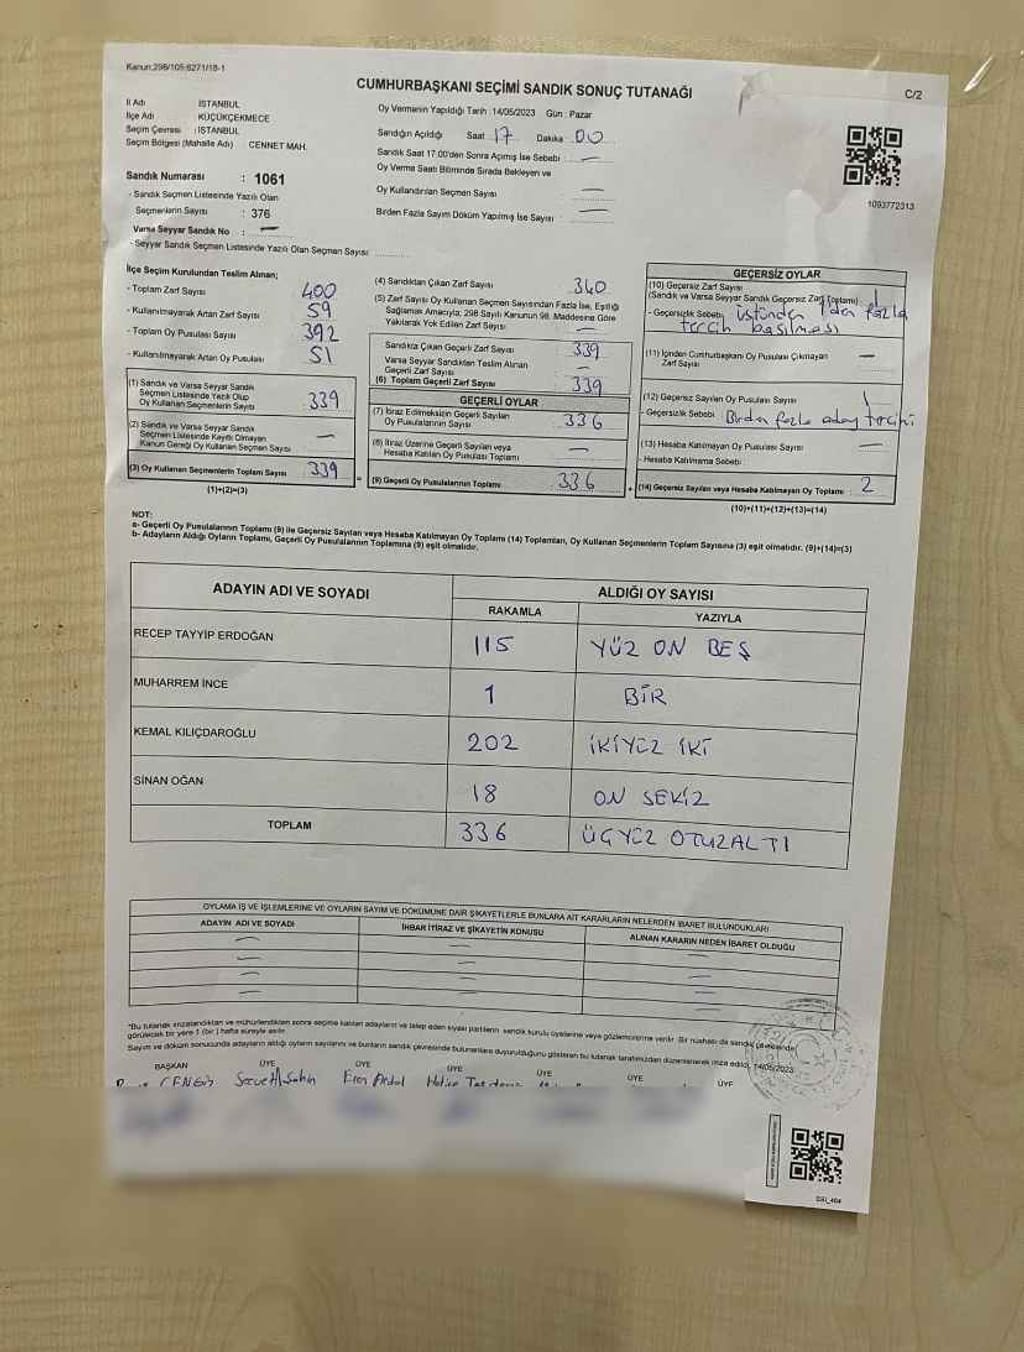 Kanun:298/105-6271/18-1
CUMHURBAŞKANI SEÇİMİ SANDIK SONUÇ TUTANAĞI
C/2
İl Adı İSTANBUL
İlçe Adı KÜÇÜKÇEKMECE
Seçim Çevresi : İSTANBUL
Seçim Bölgesi (Mahalle Adı) CENNET MAH.
Sandık Numarası : 1061
- Sandık Seçmen Listesinde Yazılı Olan
Seçmenlerin Sayısı : 376
Varsa Seyyar Sandık No : —
- Seyyar Sandık Seçmen Listesinde Yazılı Olan Seçmen Sayısı
Oy Vermenin Yapıldığı Tarih :14/05/2023 Gün : Pazar
Sandığın Açıldığı Saat 17 Dakika 00
Sandık Saat 17:00'den Sonra Açımış İse Sebebi —
Oy Verme Saati Bitiminde Sırada Bekleyen ve
Oy Kullandırılan Seçmen Sayısı —
Birden Fazla Sayım Döküm Yapılmış İse Sayısı —
1093772313
İlçe Seçim Kurulundan Teslim Alınan;
- Toplam Zarf Sayısı 400
- Kullanılmayarak Artan Zarf Sayısı 59
- Toplam Oy Pusulası Sayısı 392
- Kullanılmayarak Artan Oy Pusulası 51
(1) Sandık ve Varsa Seyyar Sandık
Seçmen Listesinde Yazılı Olup
Oy Kullanan Seçmenlerin Sayısı 339
(2) Sandık ve Varsa Seyyar Sandık
Seçmen Listesinde Kayıtlı Olmayan
Kanun Gereği Oy Kullanan Seçmen Sayısı —
(3) Oy Kullanan Seçmenlerin Toplam Sayısı 339
(1)+(2)=(3)
(4) Sandıktan Çıkan Zarf Sayısı 340
(5) Zarf Sayısı Oy Kullanan Seçmen Sayısından Fazla İse, Eşitliği
Sağlamak Amacıyla; 298 Sayılı Kanunun 98. Maddesine Göre
Yakılarak Yok Edilen Zarf Sayısı —
Sandıkta Çıkan Geçerli Zarf Sayısı 339
Varsa Seyyar Sandıktan Teslim Alınan
Geçerli Zarf Sayısı —
(6) Toplam Geçerli Zarf Sayısı 339
GEÇERLİ OYLAR
(7) İtiraz Edilmeksizin Geçerli Sayılan
Oy Pusulalarının Sayısı 336
(8) İtiraz Üzerine Geçerli Sayılan veya
Hesaba Katılan Oy Pusulası Toplamı —
(9) Geçerli Oy Pusulalarının Toplamı 336
GEÇERSİZ OYLAR
(10) Geçersiz Zarf Sayısı
(Sandık ve Varsa Seyyar Sandık Geçersiz Zarf Toplamı) 1
- Geçersizlik Sebebi üstünden 1'den fazla
tercih basılması
(11) İçinden Cumhurbaşkanı Oy Pusulası Çıkmayan
Zarf Sayısı —
(12) Geçersiz Sayılan Oy Pusulası Sayısı 1
- Geçersizlik Sebebi Birden fazla aday tercihi
(13) Hesaba Katılmayan Oy Pusulası Sayısı —
- Hesaba Katılmama Sebebi
(14) Geçersiz Sayılan veya Hesaba Katılmayan Oy Toplamı : 2
(10)+(11)+(12)+(13)=(14)
NOT:
a- Geçerli Oy Pusulalarının Toplamı (9) ile Geçersiz Sayılan veya Hesaba Katılmayan Oy Toplamı (14) Toplamları, Oy Kullanan Seçmenlerin Toplam Sayısına (3) eşit olmalıdır. (9)+(14)=(3)
b- Adayların Aldığı Oyların Toplamı, Geçerli Oy Pusulalarının Toplamına (9) eşit olmalıdır.
ADAYIN ADI VE SOYADI ALDIĞI OY SAYISI
RAKAMLA YAZIYLA
RECEP TAYYİP ERDOĞAN 115 YÜZ ON BEŞ
MUHARREM İNCE 1 BİR
KEMAL KILIÇDAROĞLU 202 İKİYÜZ İKİ
SİNAN OĞAN 18 ON SEKİZ
TOPLAM 336 ÜÇYÜZ OTUZALTI
OYLAMA İŞ VE İŞLEMLERİNE VE OYLARIN SAYIM VE DÖKÜMÜNE DAİR ŞİKAYETLERLE BUNLARA AİT KARARLARIN NELERDEN İBARET BULUNDUKLARI
ADAYIN ADI VE SOYADI İHBAR İTİRAZ VE ŞİKAYETİN KONUSU ALINAN KARARIN NEDEN İBARET OLDUĞU
*Bu tutanak imzalandıktan ve mühürlendikten sonra seçime katılan adayların ve talep eden siyasi partilerin sandık kurulu üyelerine veya gözlemcilerine verilir. Bir nüshası da sandık çevresinde
görülecek bir yere 1 (bir) hafta süreyle asılır.
Sayım ve döküm sonucunda adayların aldığı oyların sayılarını ve bunların sandık çevresinde bulunanlara duyurulduğunu gösteren bu tutanak tarafımızdan düzenlenerek imza edildi. 14/05/2023
BAŞKAN ÜYE ÜYE ÜYE ÜYE ÜYE ÜYE